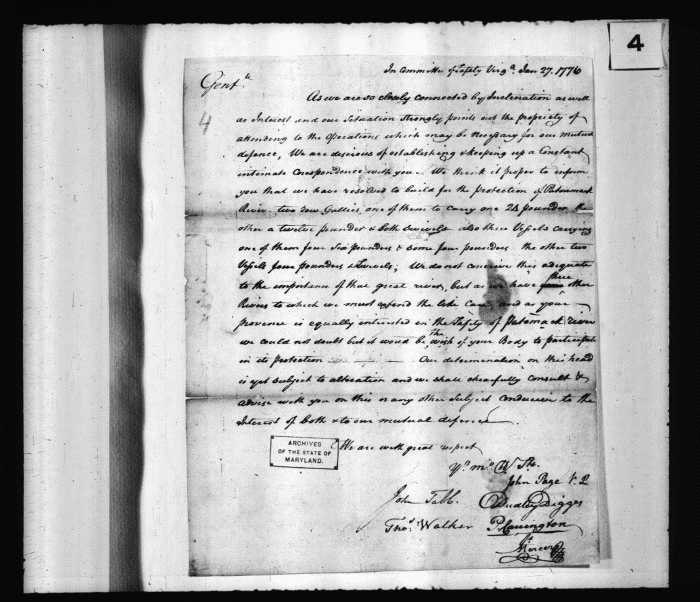 4
In Committee of Safety Virga. Jan 27. 1776
Gentn.
4
As we are so closely connected by Inclination as well
as Interest and our Situation strongly points out the propriety of
attending to the Operations which may be necessary for our mutual
defence, We are desirous of establishing & keeping up a Constant
intimate Corespondence with you. We think it proper to inform
you that we have resolved to build for the protection of Potowmack
River two row Gallies, one of them to carry one 24 pounder the
other a twelve pounder & both Swivels also three Vessels carrying
one of them four Six pounders & some four pounders the other two
Vessels four pounders & Swivels; We do not conceive this adequate
to the importance of that great river, but as we have three other
Rivers to which we must extend the like Care and as your
province is equally interested in the Safety of Potomack river
we could not doubt but it would be the wish of your Body to participate
in its protection Our determination on this head
is yet subject to alteration and we shall chearfully consult &
advise with you on this or any other Subject conducive to the
Interest of both & to our mutual defence
We are with great respect
ARCHIVES
OF THE STATE OF
MARYLAND.
Yr. mo.
John Page V. P
John Tabb. Dudley Digges
Thos. Walker P. Carrington
Js Mercer